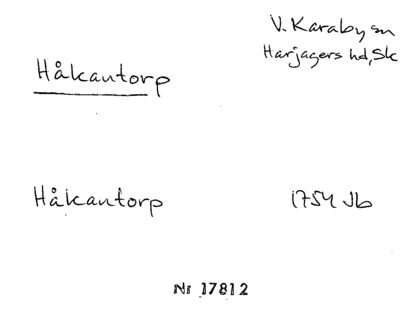 V. Karaby sn
Harjagers hd, Sk
Håkantorp
Håkantorp 1754 Jb
Nr 17812